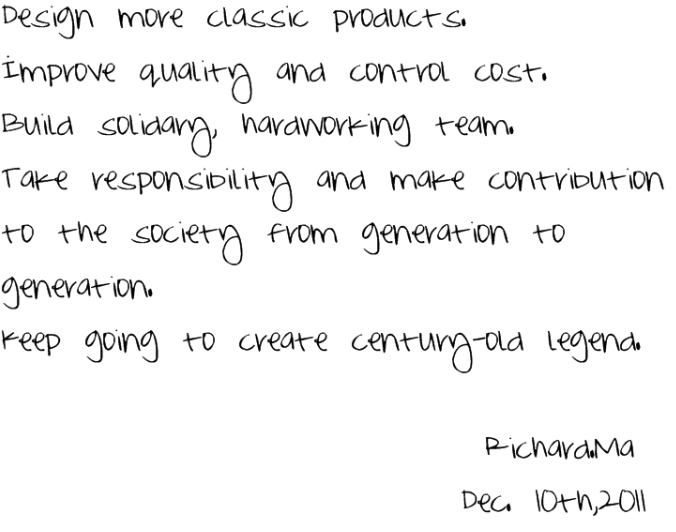 Design more classic products.
Improve quality and control cost.
Build solidary, hardworking team.
Take responsibility and make contribution
to the society from generation to
generation.
Keep going to create century-old legend.
Richard.Ma
Dec. 10th,2011